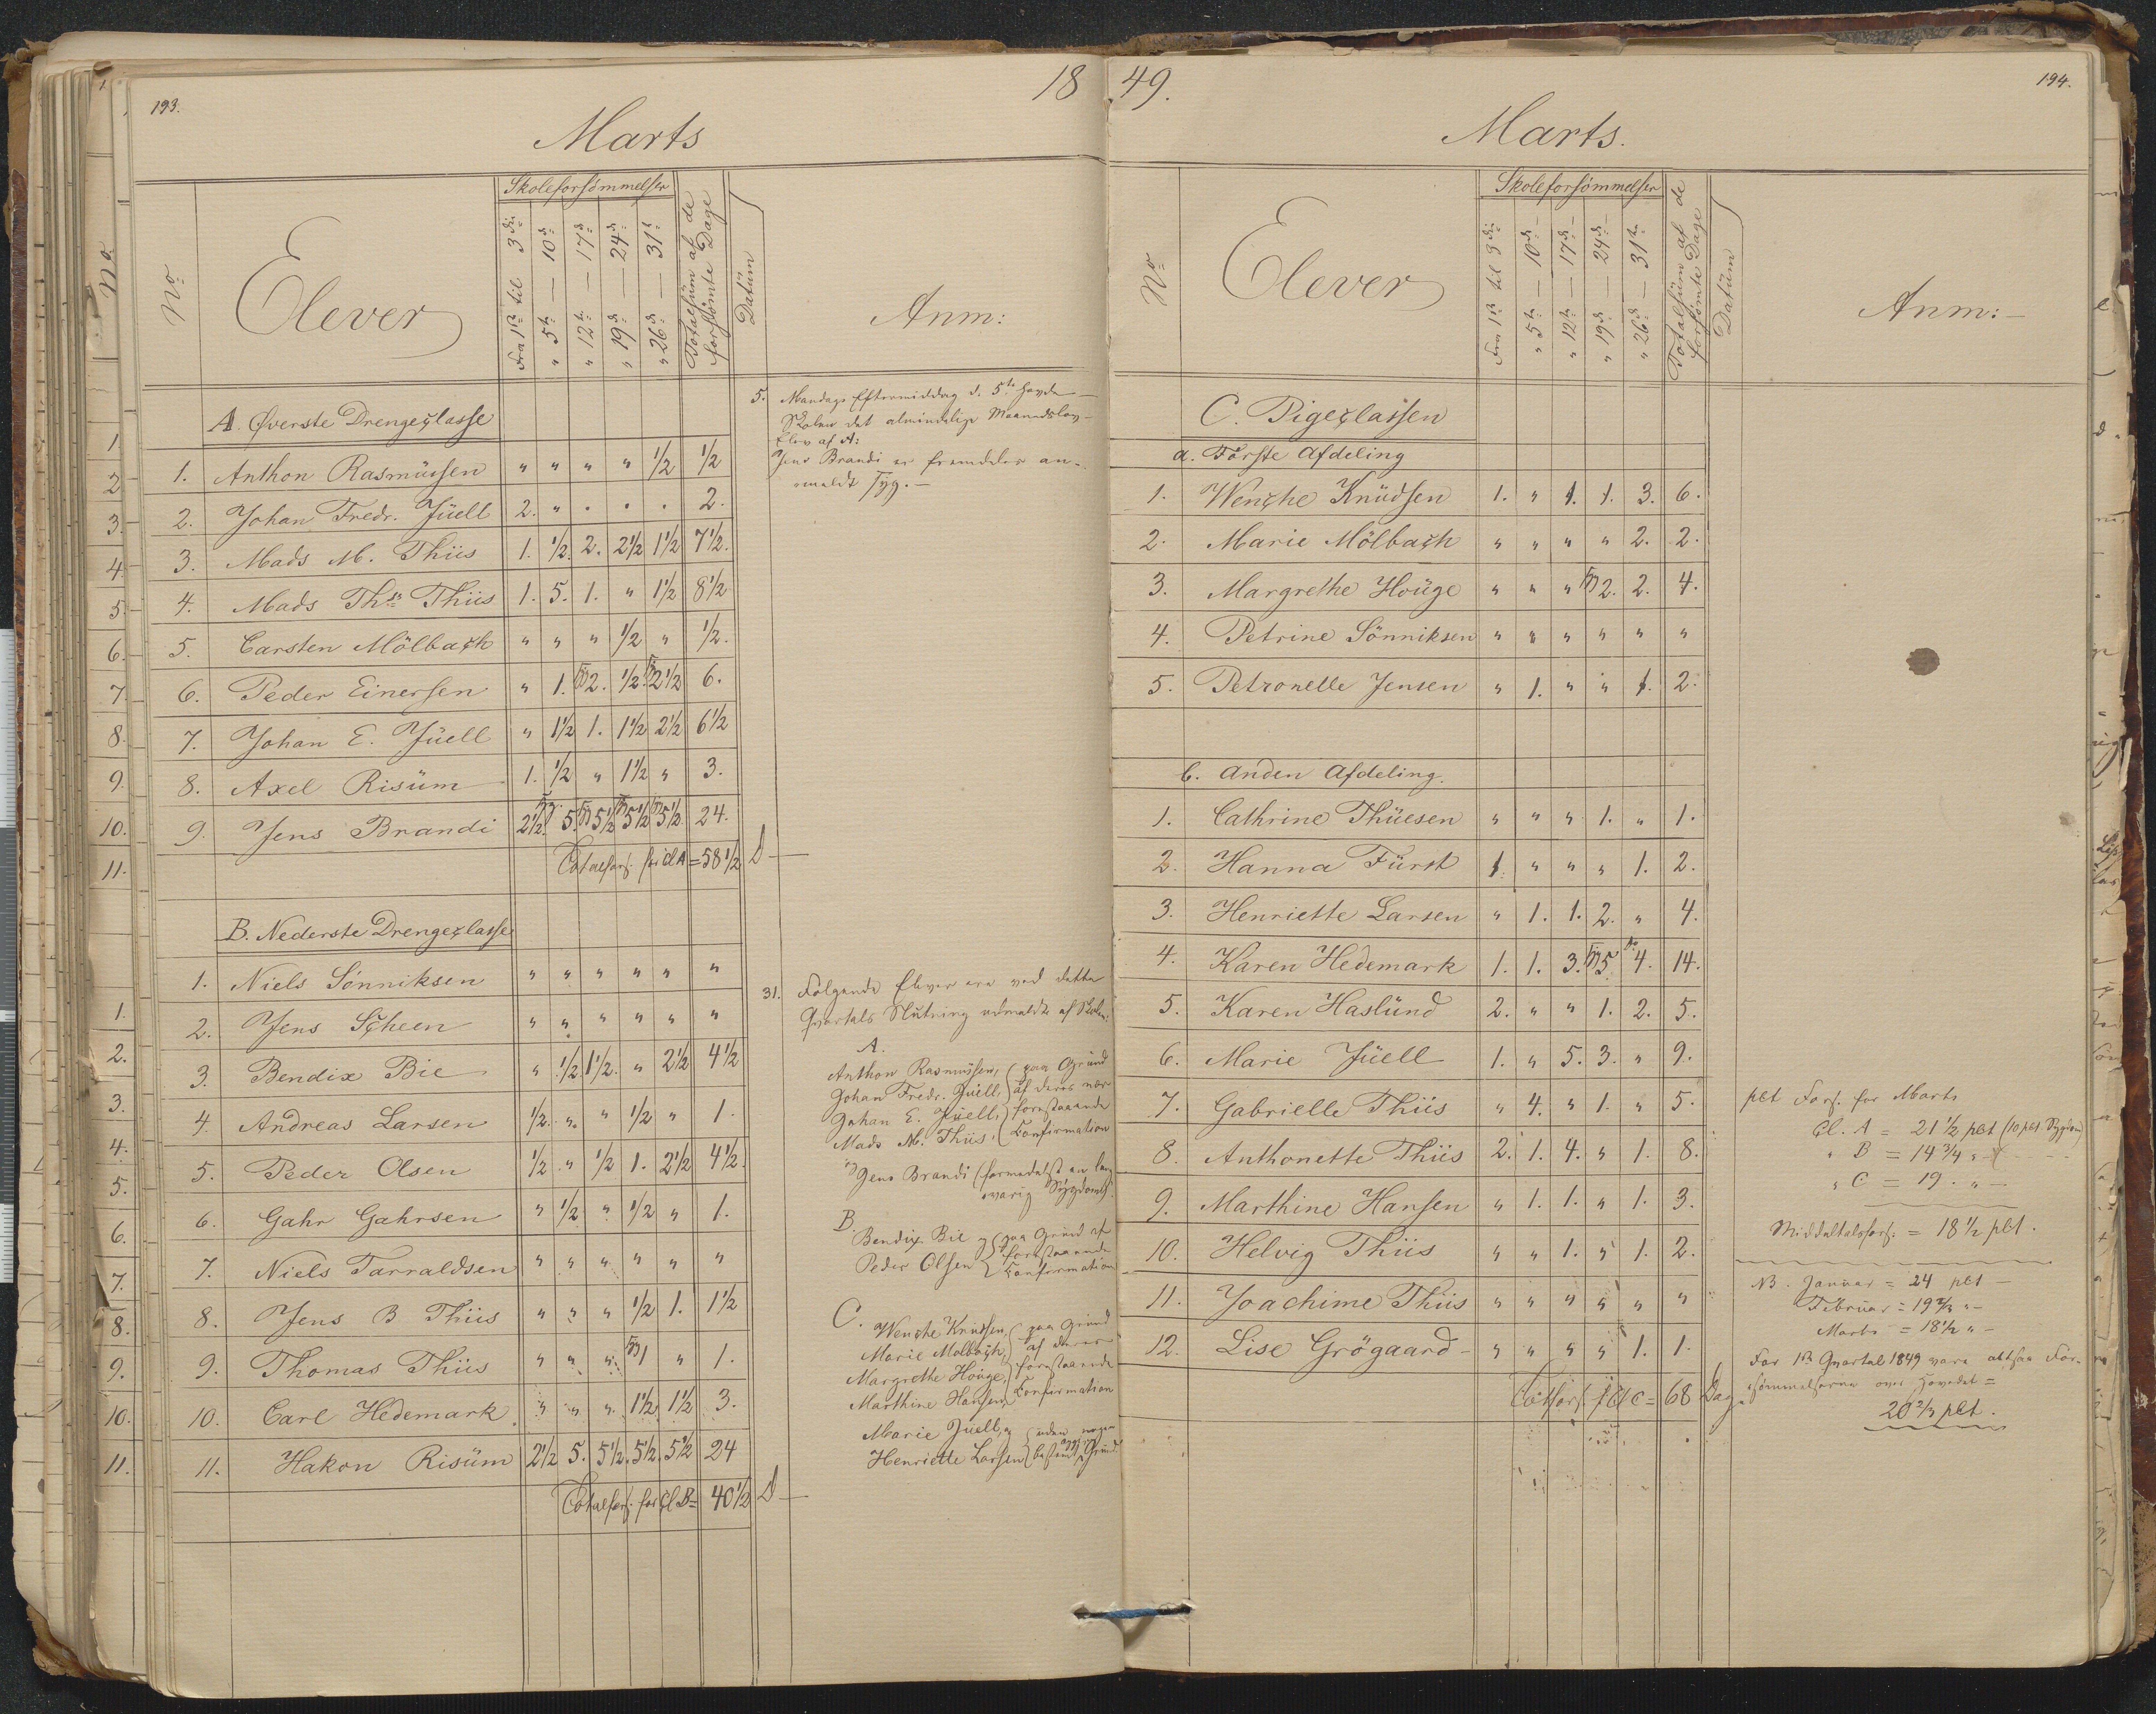 193.
18
Marts
No
Elever
Skoleforsömmelser
Fra 1ste til 3die
" 5te — 10de
" 12te — 17de
" 19de — 24de
" 26de — 31te
Totalsüm af de forsömte Dage
Datüm
Anm:
A. Øverste Drengeclasse
1. Anthon Rasmüssen " " " " 1/2 1/2
2. Johan Fredr. Jüell 2. " . . . 2.
3. Mads M. Thiis 1. 1/2. 2. 2 1/2 1 1/2 7 1/2.
4. Mads Ths Thiis 1. 5. 1. " 1 1/2 8 1/2
5. Carsten Mölbach " " " 1/2 " 1/2.
6. Peder Einersen " 1. 2. 1/2. 2 1/2 6.
7. Johan E. Jüell " 1 1/2 1. 1 1/2 2 1/2 6 1/2
8. Axel Risüm 1. 1/2 " 1 1/2 " 3.
9. Jens Brandi 2 1/2. 5. 5 1/2 5 1/2 5 1/2. 24.
Totalfors. for Cl A = 58 1/2 D —
B. Nederste Drengeclasse
1. Niels Sønniksen " " " " " "
2. Jens Scheen " " " " " "
3. Bendix Bie " 1/2 1 1/2. " 2 1/2 4 1/2
4. Andreas Larsen 1/2. " " 1/2 " 1.
5. Peder Olsen 1/2 " 1/2 1. 2 1/2 4 1/2.
6. Gahr Gahrsen " 1/2 " 1/2 " 1.
7. Niels Tarraldsen " " " " " "
8. Jens B Thiis " " " 1/2 1. 1 1/2
9. Thomas Thiis " " " 1 " 1.
10. Carl Hedemark " " " 1 1/2 1 1/2 3.
11. Hakon Risüm 2 1/2 5. 5 1/2. 5 1/2. 5 1/2 24
Totalfors. for Cl B = 40 1/2 D —
5. Mandags Eftermiddag d. 5te havde
Skolen det almindelige Maanedslov —
Elev af A:
Jens Brandi er fremdeles an-
meldt syg. —
31. Følgende Elever ere ved dette
Qvartals Slütning udmeldte af Skolen:
A.
Anthon Rasmüssen, paa Grund
Johan Fredr. Jüell, af deres nær
Johan E. Jüell, forestaaende
Mads M. Thiis, Confirmation
Jens Brandi (formedelst en lang
varig Sygdom).
B.
Bendix Bie og paa Grund af
Peder Olsen forestaaende Confirmation
C.
Wenche Knudsen, paa Grund
Marie Mølbach, af deres
Margrethe Houge, forestaaende
Marthine Hansen, Confirmation
Marie Jüell, og uden nogen
Henriette Larsen opgiven bestemt Grund.
49.
194.
Marts.
No
Elever
Skoleforsömmelser
Fra 1ste til 3die
" 5te — 10de
" 12te — 17de
" 19de — 24de
" 26de — 31te
Totalsüm af de forsömte Dage
Datüm
Anm: —
C. Pigeclassen
a. Förste Afdeling
1. Wenche Knüdsen 1. " 1. 1. 3. 6.
2. Marie Mölbach " " " " 2. 2.
3. Margrethe Hoüge " " " 2. 2. 4.
4. Petrine Sönniksen " " " " " "
5. Petronelle Jensen " 1. " " 1. 2.
b. Anden Afdeling.
1. Cathrine Thüesen " " " 1. " 1.
2. Hanna Fürst 1. " " " 1. 2.
3. Henriette Larsen " 1. 1. 2. " 4.
4. Karen Hedemark 1. 1. 3. 5. 4. 14.
5. Karen Haslünd 2. " " 1. 2. 5.
6. Marie Jüell 1. " 5. 3. " 9.
7. Gabrielle Thiis " 4. " 1. " 5.
8. Anthonette Thiis 2. 1. 4. " 1. 8.
9. Marthine Hansen " 1. 1. " 1. 3.
10. Helvig Thiis " " 1. " 1. 2.
11. Joachime Thiis " " " " " "
12. Lise Grögaard " " " " 1. 1.
Totfors. f Cl C = 68 Dag
pCt Fors. for Marts
Cl. A = 21 1/2 pCt (10 pCt Sygdom)
" B = 14 3/4 " —
" C = 19. " —
Middeltalsfors. = 18 1/2 pCt.
NB. Januar = 24 pCt —
Februar = 19 2/3 " —
Marts = 18 1/2 " —
For 1ste Qvartal 1849 vare altsaa For-
sömmelserne over Hovedet =
20 2/3 pCt.